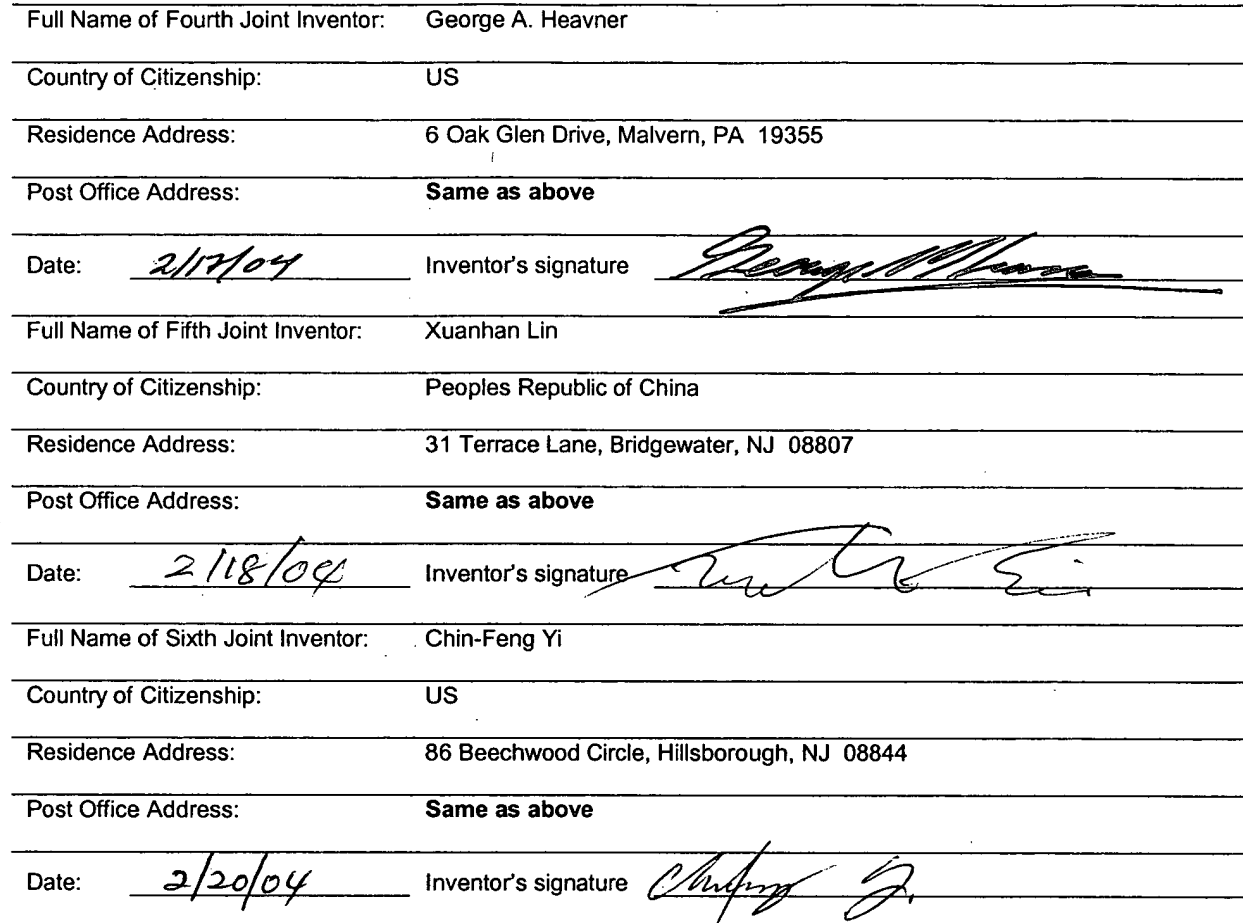 Full Name of Fourth Joint Inventor: George A. Heavner
Country of Citizenship: US
Residence Address: 6 Oak Glen Drive, Malvern, PA 19355
Post Office Address: Same as above
Date: 2/17/04 Inventor's signature
Full Name of Fifth Joint Inventor: Xuanhan Lin
Country of Citizenship: Peoples Republic of China
Residence Address: 31 Terrace Lane, Bridgewater, NJ 08807
Post Office Address: Same as above
Date: 2/18/04 Inventor's signature
Full Name of Sixth Joint Inventor: Chin-Feng Yi
Country of Citizenship: US
Residence Address: 86 Beechwood Circle, Hillsborough, NJ 08844
Post Office Address: Same as above
Date: 2/20/04 Inventor's signature